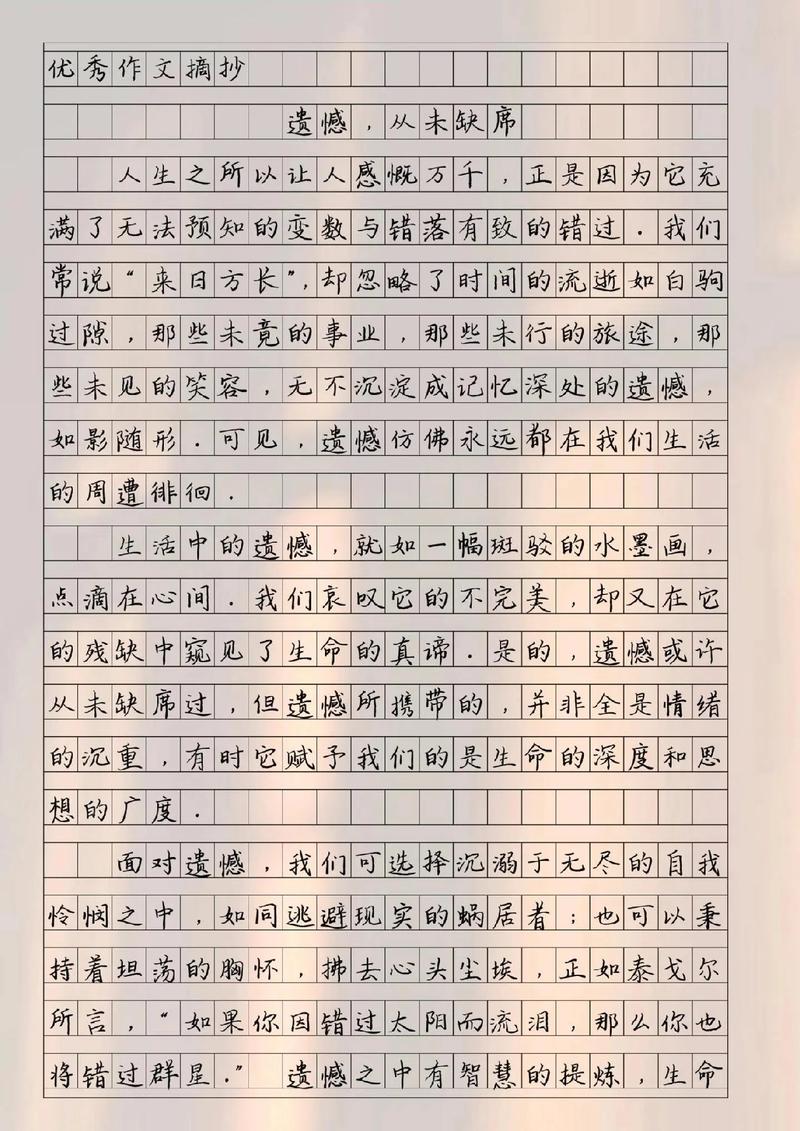 优秀作文摘抄
遗憾，从未缺席
人生之所以让人感慨万千，正是因为它充
满了无法预知的变数与错落有致的错过．我们
常说“来日方长”，却忽略了时间的流逝如白驹
过隙，那些未竟的事业，那些未行的旅途，那
些未见的笑容，无不沉淀成记忆深处的遗憾，
如影随形．可见，遗憾仿佛永远都在我们生活
的周遭徘徊．
生活中的遗憾，就如一幅斑驳的水墨画，
点滴在心间．我们哀叹它的不完美，却又在它
的残缺中窥见了生命的真谛．是的，遗憾或许
从未缺席过，但遗憾所携带的，并非全是情绪
的沉重，有时它赋予我们的是生命的深度和思
想的广度．
面对遗憾，我们可选择沉溺于无尽的自我
怜悯之中，如同逃避现实的蜗居者；也可以秉
持着坦荡的胸怀，拂去心头尘埃，正如泰戈尔
所言，“如果你因错过太阳而流泪，那么你也
将错过群星．” 遗憾之中有智慧的提炼，生命